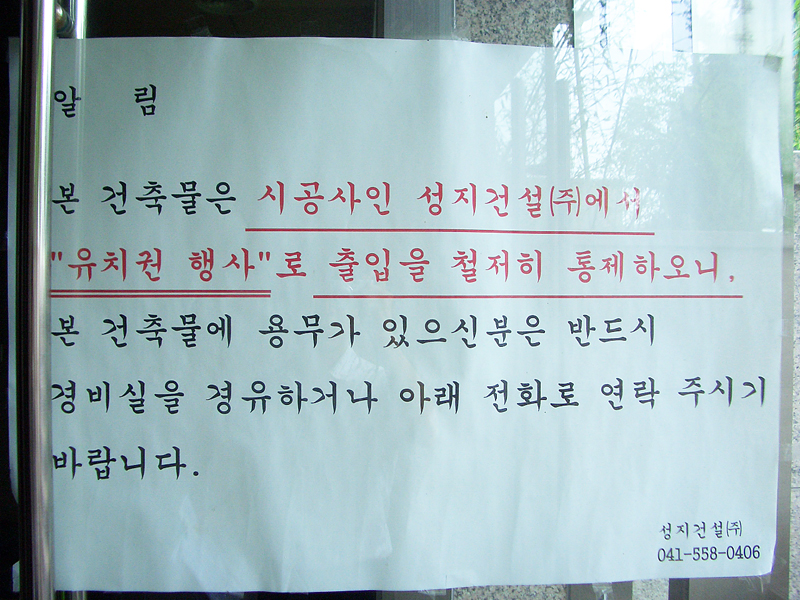 알 림
본 건축물은 시공사인 성지건설㈜에서
"유치권 행사"로 출입을 철저히 통제하오니,
본 건축물에 용무가 있으신분은 반드시
경비실을 경유하거나 아래 전화로 연락 주시기
바랍니다.
성지건설㈜
041-558-0406